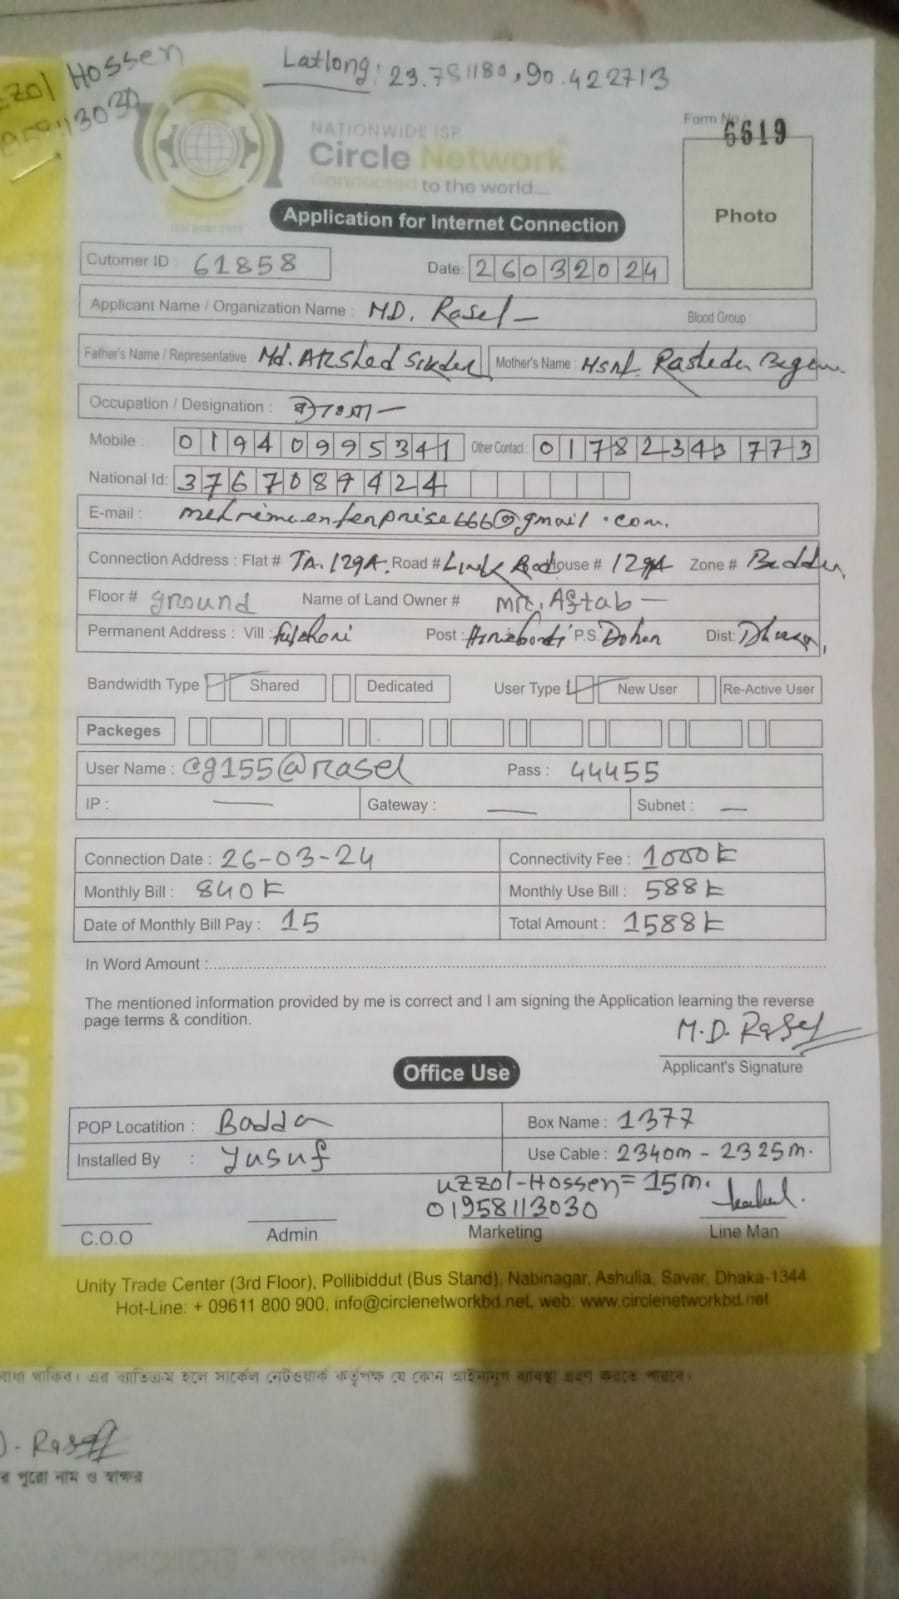 Hossen
Latlong: 23.781180, 90.422713
Form No
6619
NATIONWIDE ISP
Circle Network
Connected to the world....
Photo
Application for Internet Connection
Cutomer ID 61858
Date: 26032024
Applicant Name / Organization Name : MD. Rasel
Blood Group
Father's Name / Representative Md. Arshed Sikder Mother's Name Begum
Occupation / Designation :
Mobile : 01940995341 Other Contact : 01782343773
National Id: 3767087424
E-mail : @gmail.com.
Connection Address : Flat # TA. 129A. Road # Link Road House # 129A Zone # Badda
Floor # ground Name of Land Owner # MR. Aftab
Permanent Address : Vill : Post : P.S. Dohar Dist: Dhaka
Bandwidth Type Shared Dedicated User Type New User Re-Active User
Packeges
User Name : cg155@rasel Pass : 44455
IP : — Gateway : — Subnet : —
Connection Date : 26-03-24 Connectivity Fee : 1000
Monthly Bill : 840 Monthly Use Bill : 588
Date of Monthly Bill Pay : 15 Total Amount : 1588
In Word Amount :
The mentioned information provided by me is correct and I am signing the Application learning the reverse
page terms & condition.
M.D. Rasel
Applicant's Signature
Office Use
POP Locatition : Badda Box Name : 1377
Installed By : Yusuf Use Cable : 2340m - 2325m.
Uzzol-Hossen = 15m.
01958113030
C.O.O Admin Marketing Line Man
Unity Trade Center (3rd Floor), Pollibiddut (Bus Stand), Nabinagar, Ashulia, Savar, Dhaka-1344
Hot-Line: + 09611 800 900, info@circlenetworkbd.net, web: www.circlenetworkbd.net
থাকিব। এর ব্যতিক্রম হলে সার্কেল নেটওয়ার্ক কর্তৃপক্ষ যে কোন আইনানুগ ব্যবস্থা গ্রহণ করতে পারবে।
পুরো নাম ও স্বাক্ষর